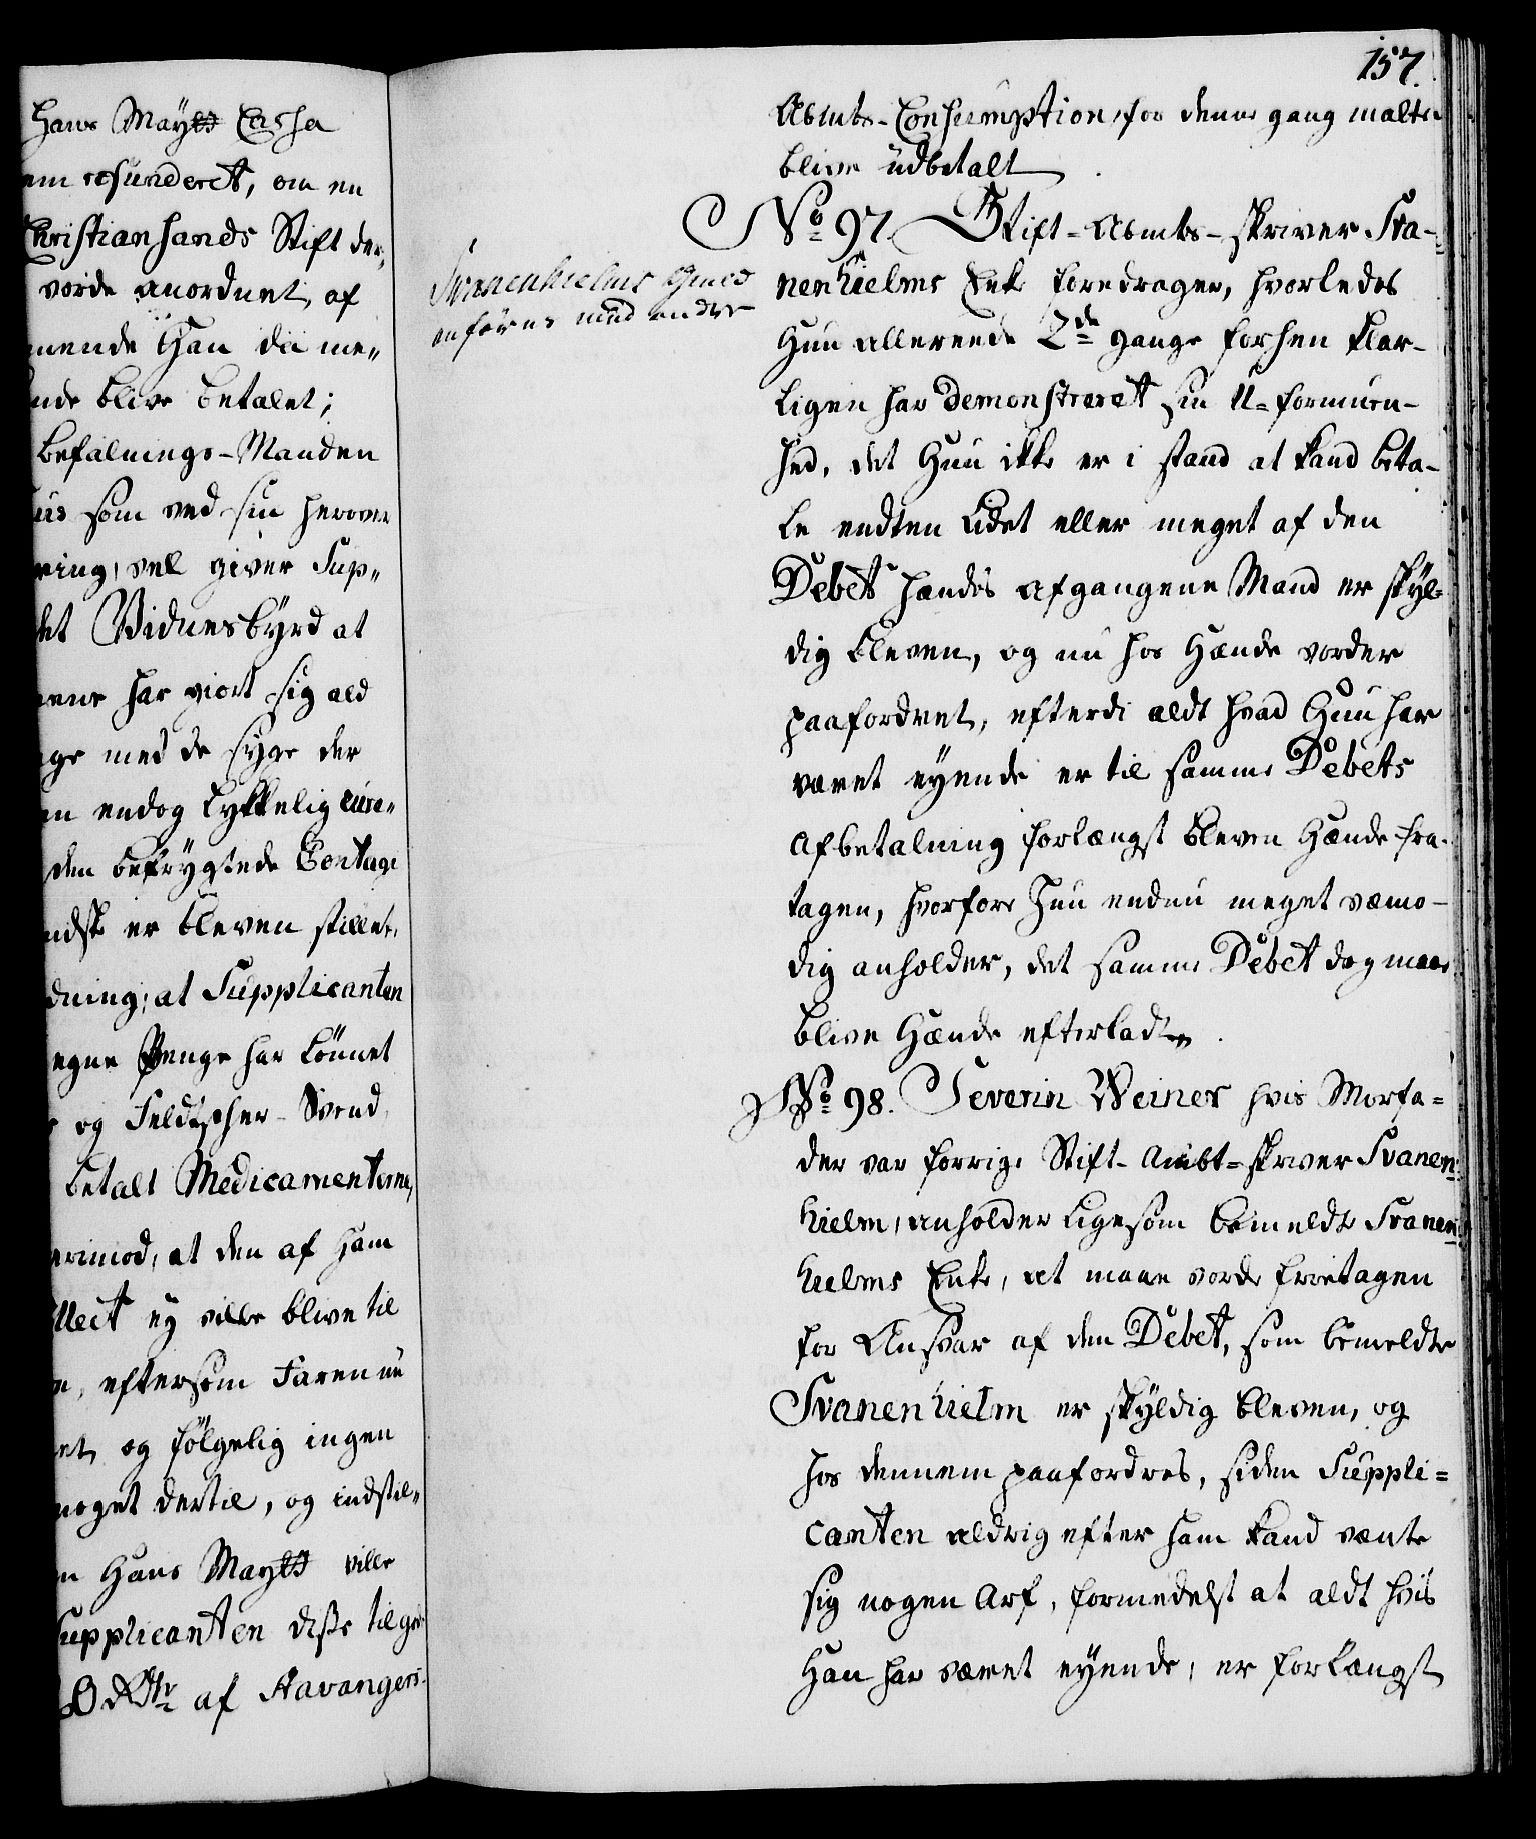 Hans Mayts Cassa
refunderet, om en
Christiansands Stift der,
vorde anordnet, af
mende Han da me„
nde blive betalet;
befalnings-Manden
som ved sin herover
ring, vel giver Sup„
det Vidnesbyrd at
har giort sig ald
ge med de syge der
en endog lykkelig cure„
den befrygtede Contagi
ndsk er bleven stillet,
dning; at Supplicanten
egne Penge har lønnet
og Feldtscher-Svend,
betalt Medicamenterne,
erimod, at den af ham
llect ey ville blive til
eftersom Faren nu
et, og følgelig ingen
noget dertil, og indstil„
Hans Mayts ville
Supplicanten disse til
Rdr af Stavangers
157.
Ambts-Consumption for denne gang maatte
blive udbetalt
No 97. Stift-Ambts-skriver Sva-
nenhielms Enke foredrager, hvorledes
Hun allereede 2de gange forhen klar-
ligen har demonstreret sin U-formuen-
hed, det Hun ikke er i stand at kand beta-
le endten Lidet eller meget af den
Debet hendes afgangene Mand er skyl-
dig bleven, og nu hos Hænde vorder
paafordret, efterdi aldt hvad Hun har
været eyende er til samme Debets
afbetalning forlængst bleven Hænde fra-
tagen, hvorfore Hun endnu meget væmo-
dig anholder, det samme Debet dog maae
blive Hænde efterladt.
Svanenhielms
anføres med andre
No 98. Severin Weiner hvis Morfa=
der var forrige Stift-Ambt-skriver Svanen-
hielm, anholder ligesom bemeldte Svanen-
hielms Enke, at maae vorde friетagen
for Ansvar af den Debet, som bemeldte
Svanenhielm er skyldig bleven, og
hos dennem paafordres, siden Suppli=
canten aldrig efter ham kand vænte
sig nogen Arf, formedelst at aldt hvis
Han har været eyende, er forlængst